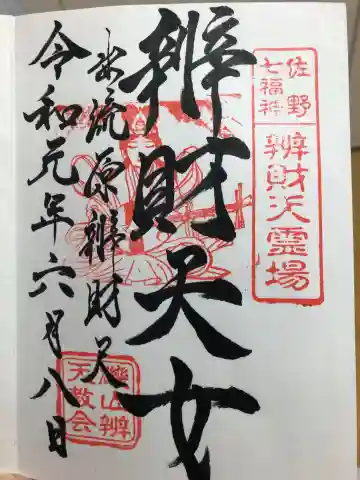 佐野
七福神
辨財天霊場
辨財天女
出流原辨財天
令和元年六月八日
山辨
天教会